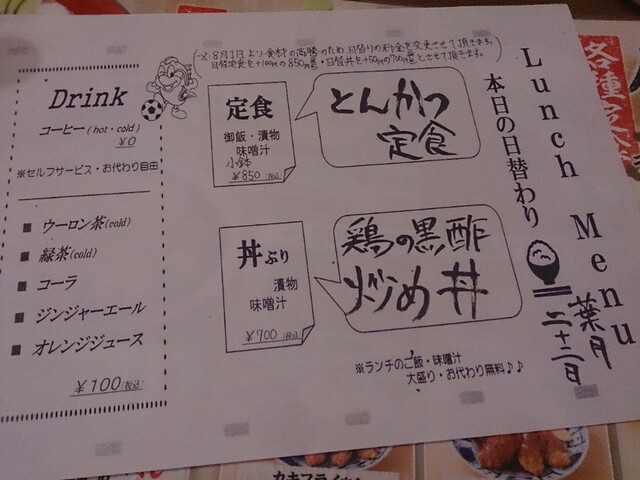 (※8月1日より食材の高騰のため、日替りの料金を変更させて頂きます。
日替定食を+100円の850円・日替丼を+50円の700円とさせて頂きます。)
Lunch Menu
本日の日替わり
葉月
二十二日
定食
御飯・漬物
味噌汁
小鉢
¥850(税込)
とんかつ
定食
丼ぶり
漬物
味噌汁
¥700(税込)
鶏の黒酢
炒め丼
※ランチのご飯・味噌汁
大盛り・お代わり無料♪♪
Drink
コーヒー(hot・cold)
¥0
※セルフサービス・お代わり自由
■ ウーロン茶(cold)
■ 緑茶(cold)
■ コーラ
■ ジンジャーエール
■ オレンジジュース
¥100(税込)
各種
カキフライ